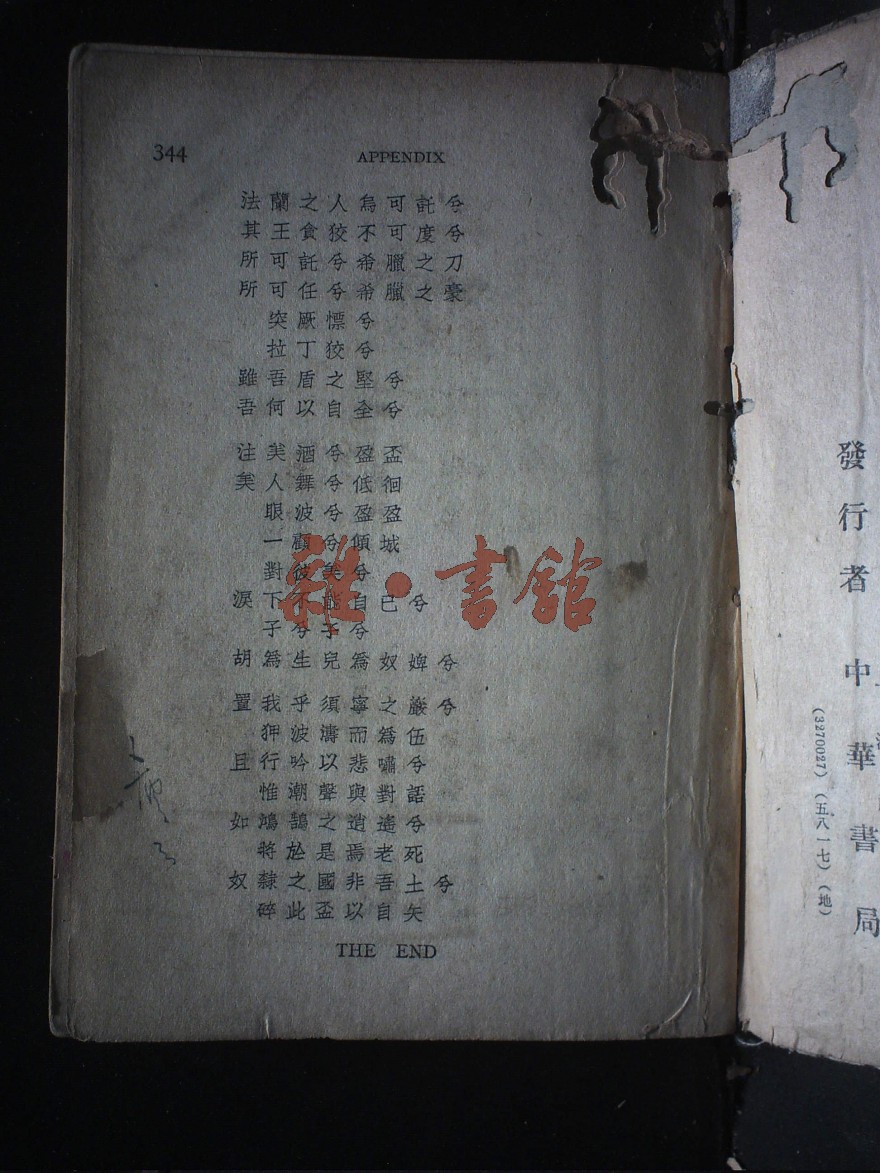 344
APPENDIX
法蘭之人烏可託兮
其王貪狡不可度兮
所可託兮希臘之刀
所可任兮希臘之豪
突厥慓兮
拉丁狡兮
雖吾盾之堅兮
吾何以自全兮
注美酒兮盈盃
美人舞兮低徊
眼波兮盈盈
一顧兮傾城
對彼美兮
淚下不能自已兮
子兮子兮
胡爲生兒爲奴婢兮
置我乎須寧之巖兮
狎波濤而爲伍
且行吟以悲嘯兮
惟潮聲與對語
如鴻鵠之逍遙兮
將於是焉老死
奴隸之國非吾土兮
碎此盃以自矢
THE END
雜·書館
發行者
中華書局
(3270027)(五八一七)(地)